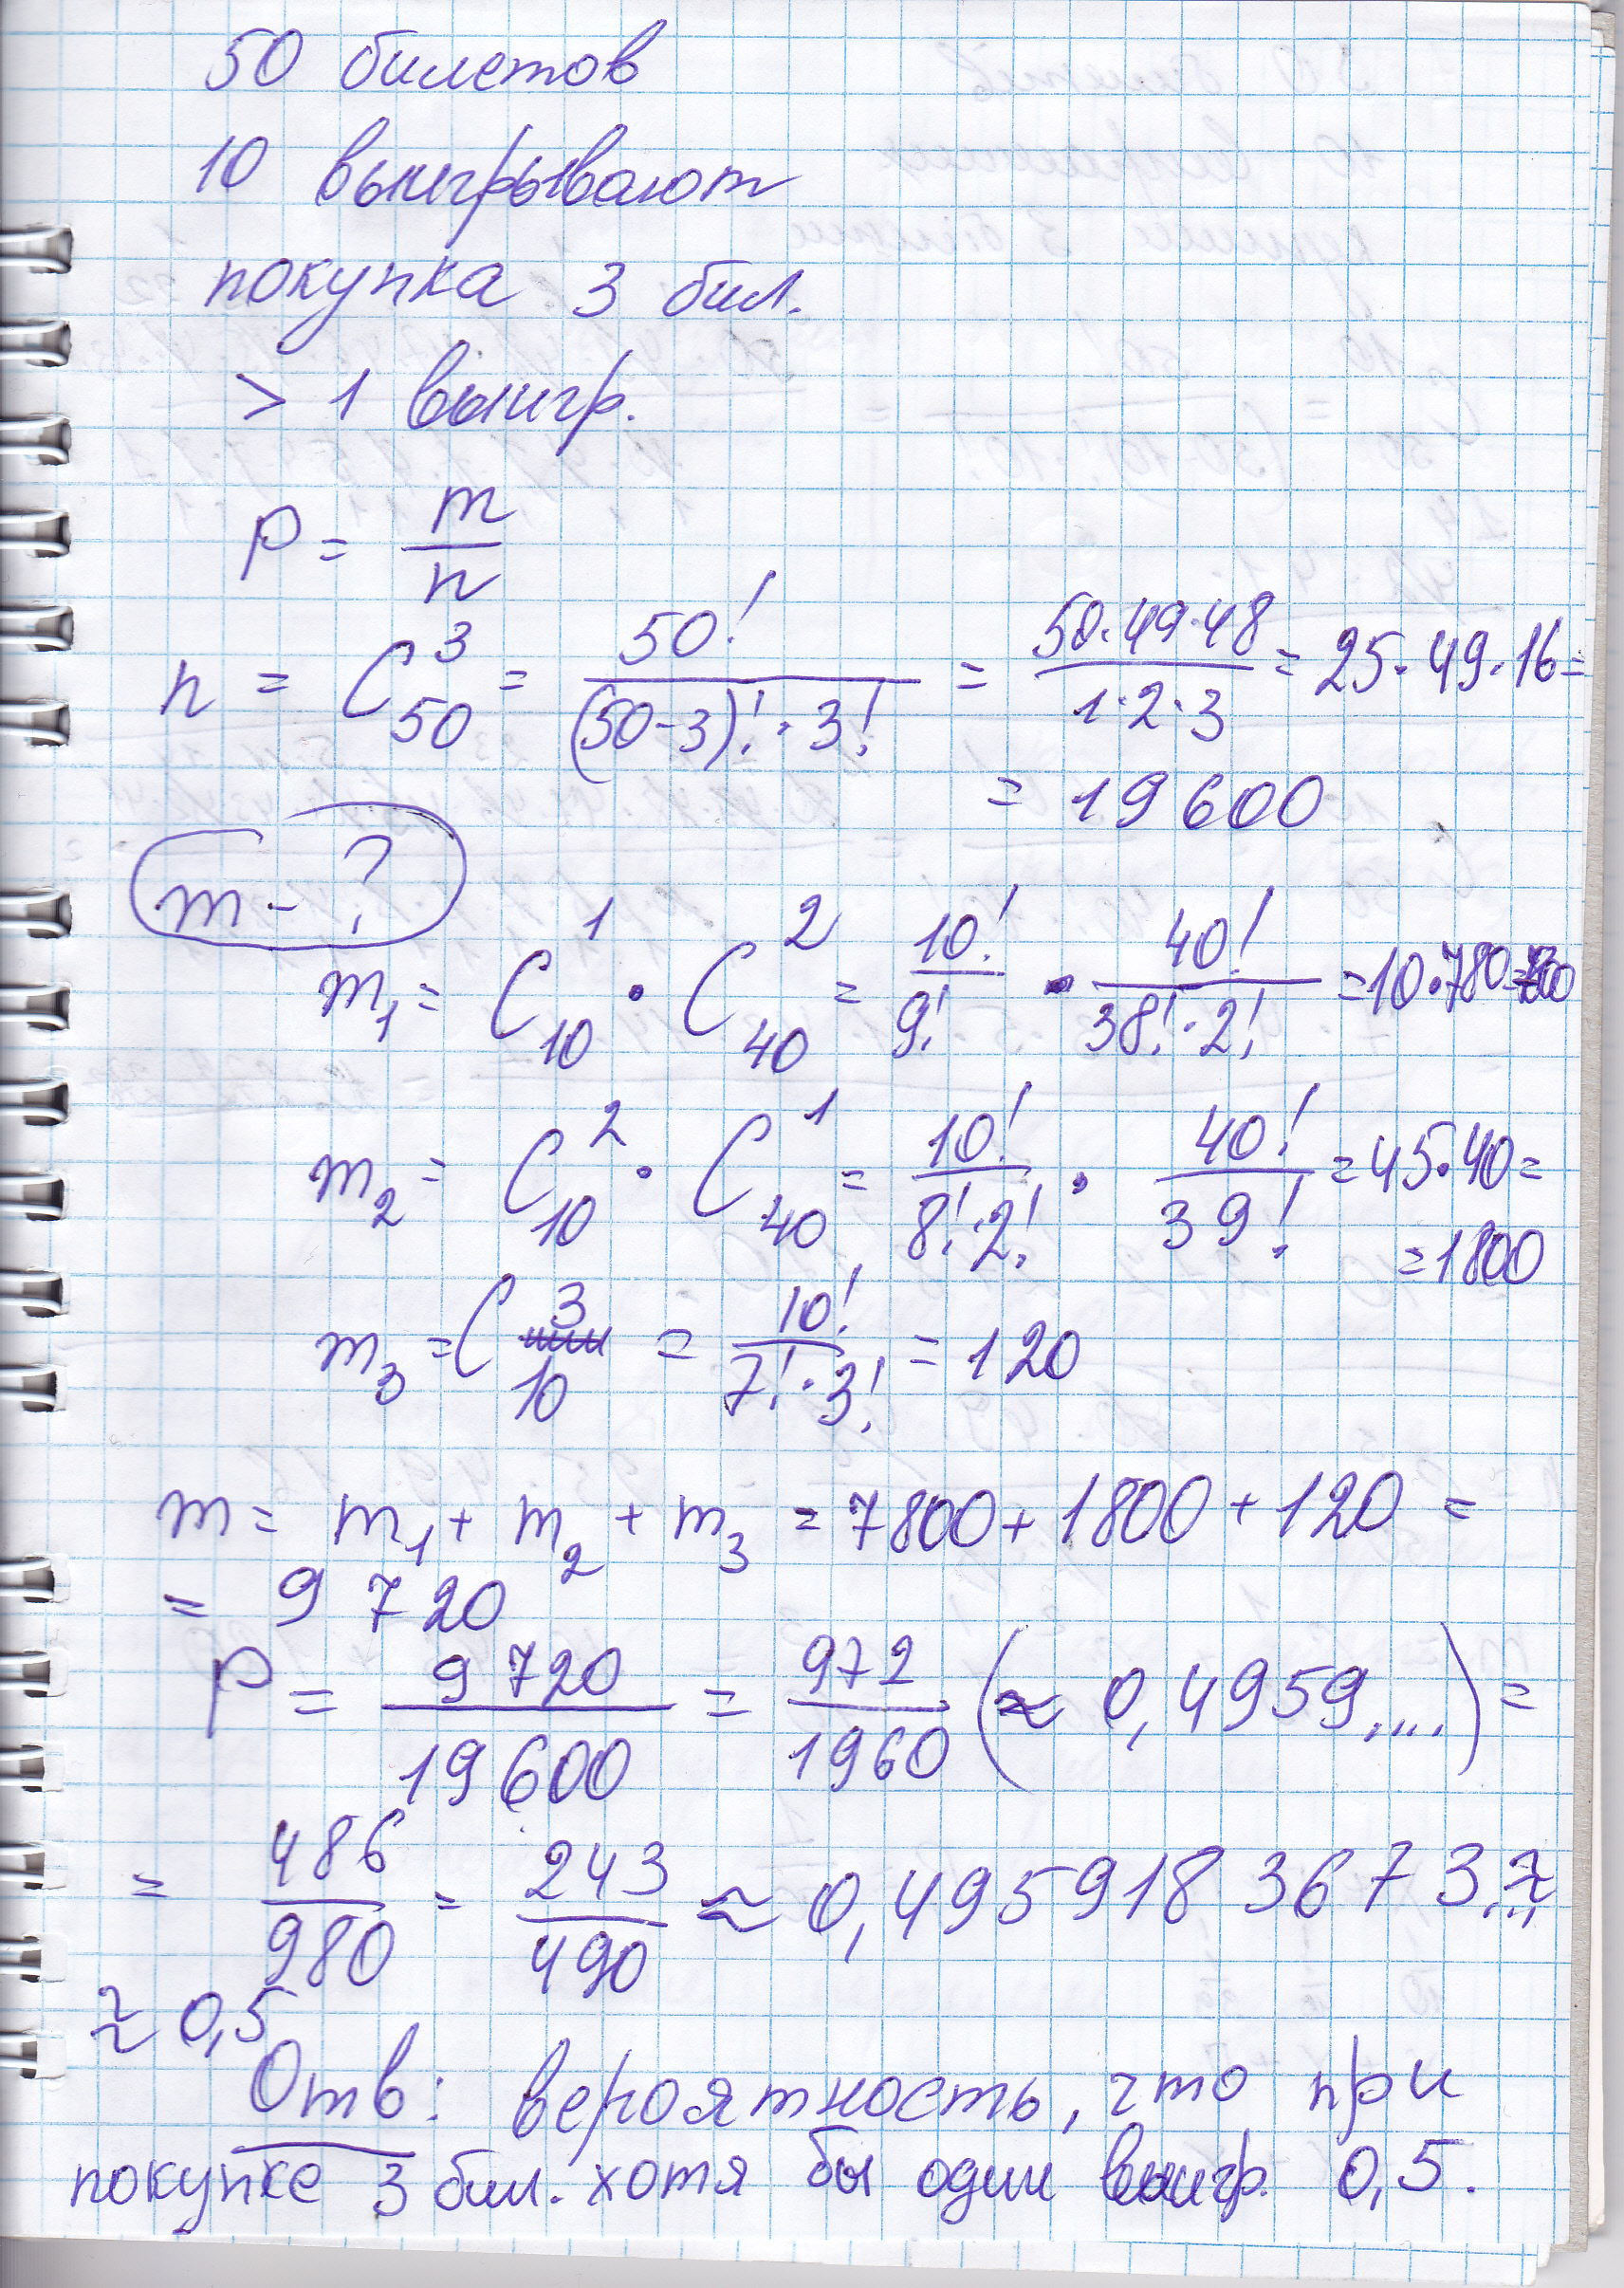 50 билетов
10 выигрывают
покупка 3 бил.
> 1 выигр.
P = m/n
n = C_50^3 = 50!/((50-3)!·3!) = 50·49·48/(1·2·3) = 25·49·16 =
= 19600
m - ?
m_1 = C_10^1 · C_40^2 = 10!/9! · 40!/(38!·2!) = 10·780 = 7800
m_2 = C_10^2 · C_40^1 = 10!/(8!·2!) · 40!/39! = 45·40 =
= 1800
m_3 = C_10^3 = 10!/(7!·3!) = 120
m = m_1 + m_2 + m_3 = 7800 + 1800 + 120 =
= 9720
P = 9720/19600 = 972/1960 (≈ 0,4959....) =
= 486/980 = 243/490 ≈ 0,4959183673... ≈
≈ 0,5
Отв: вероятность, что при
покупке 3 бил. хотя бы один выигр. 0,5.